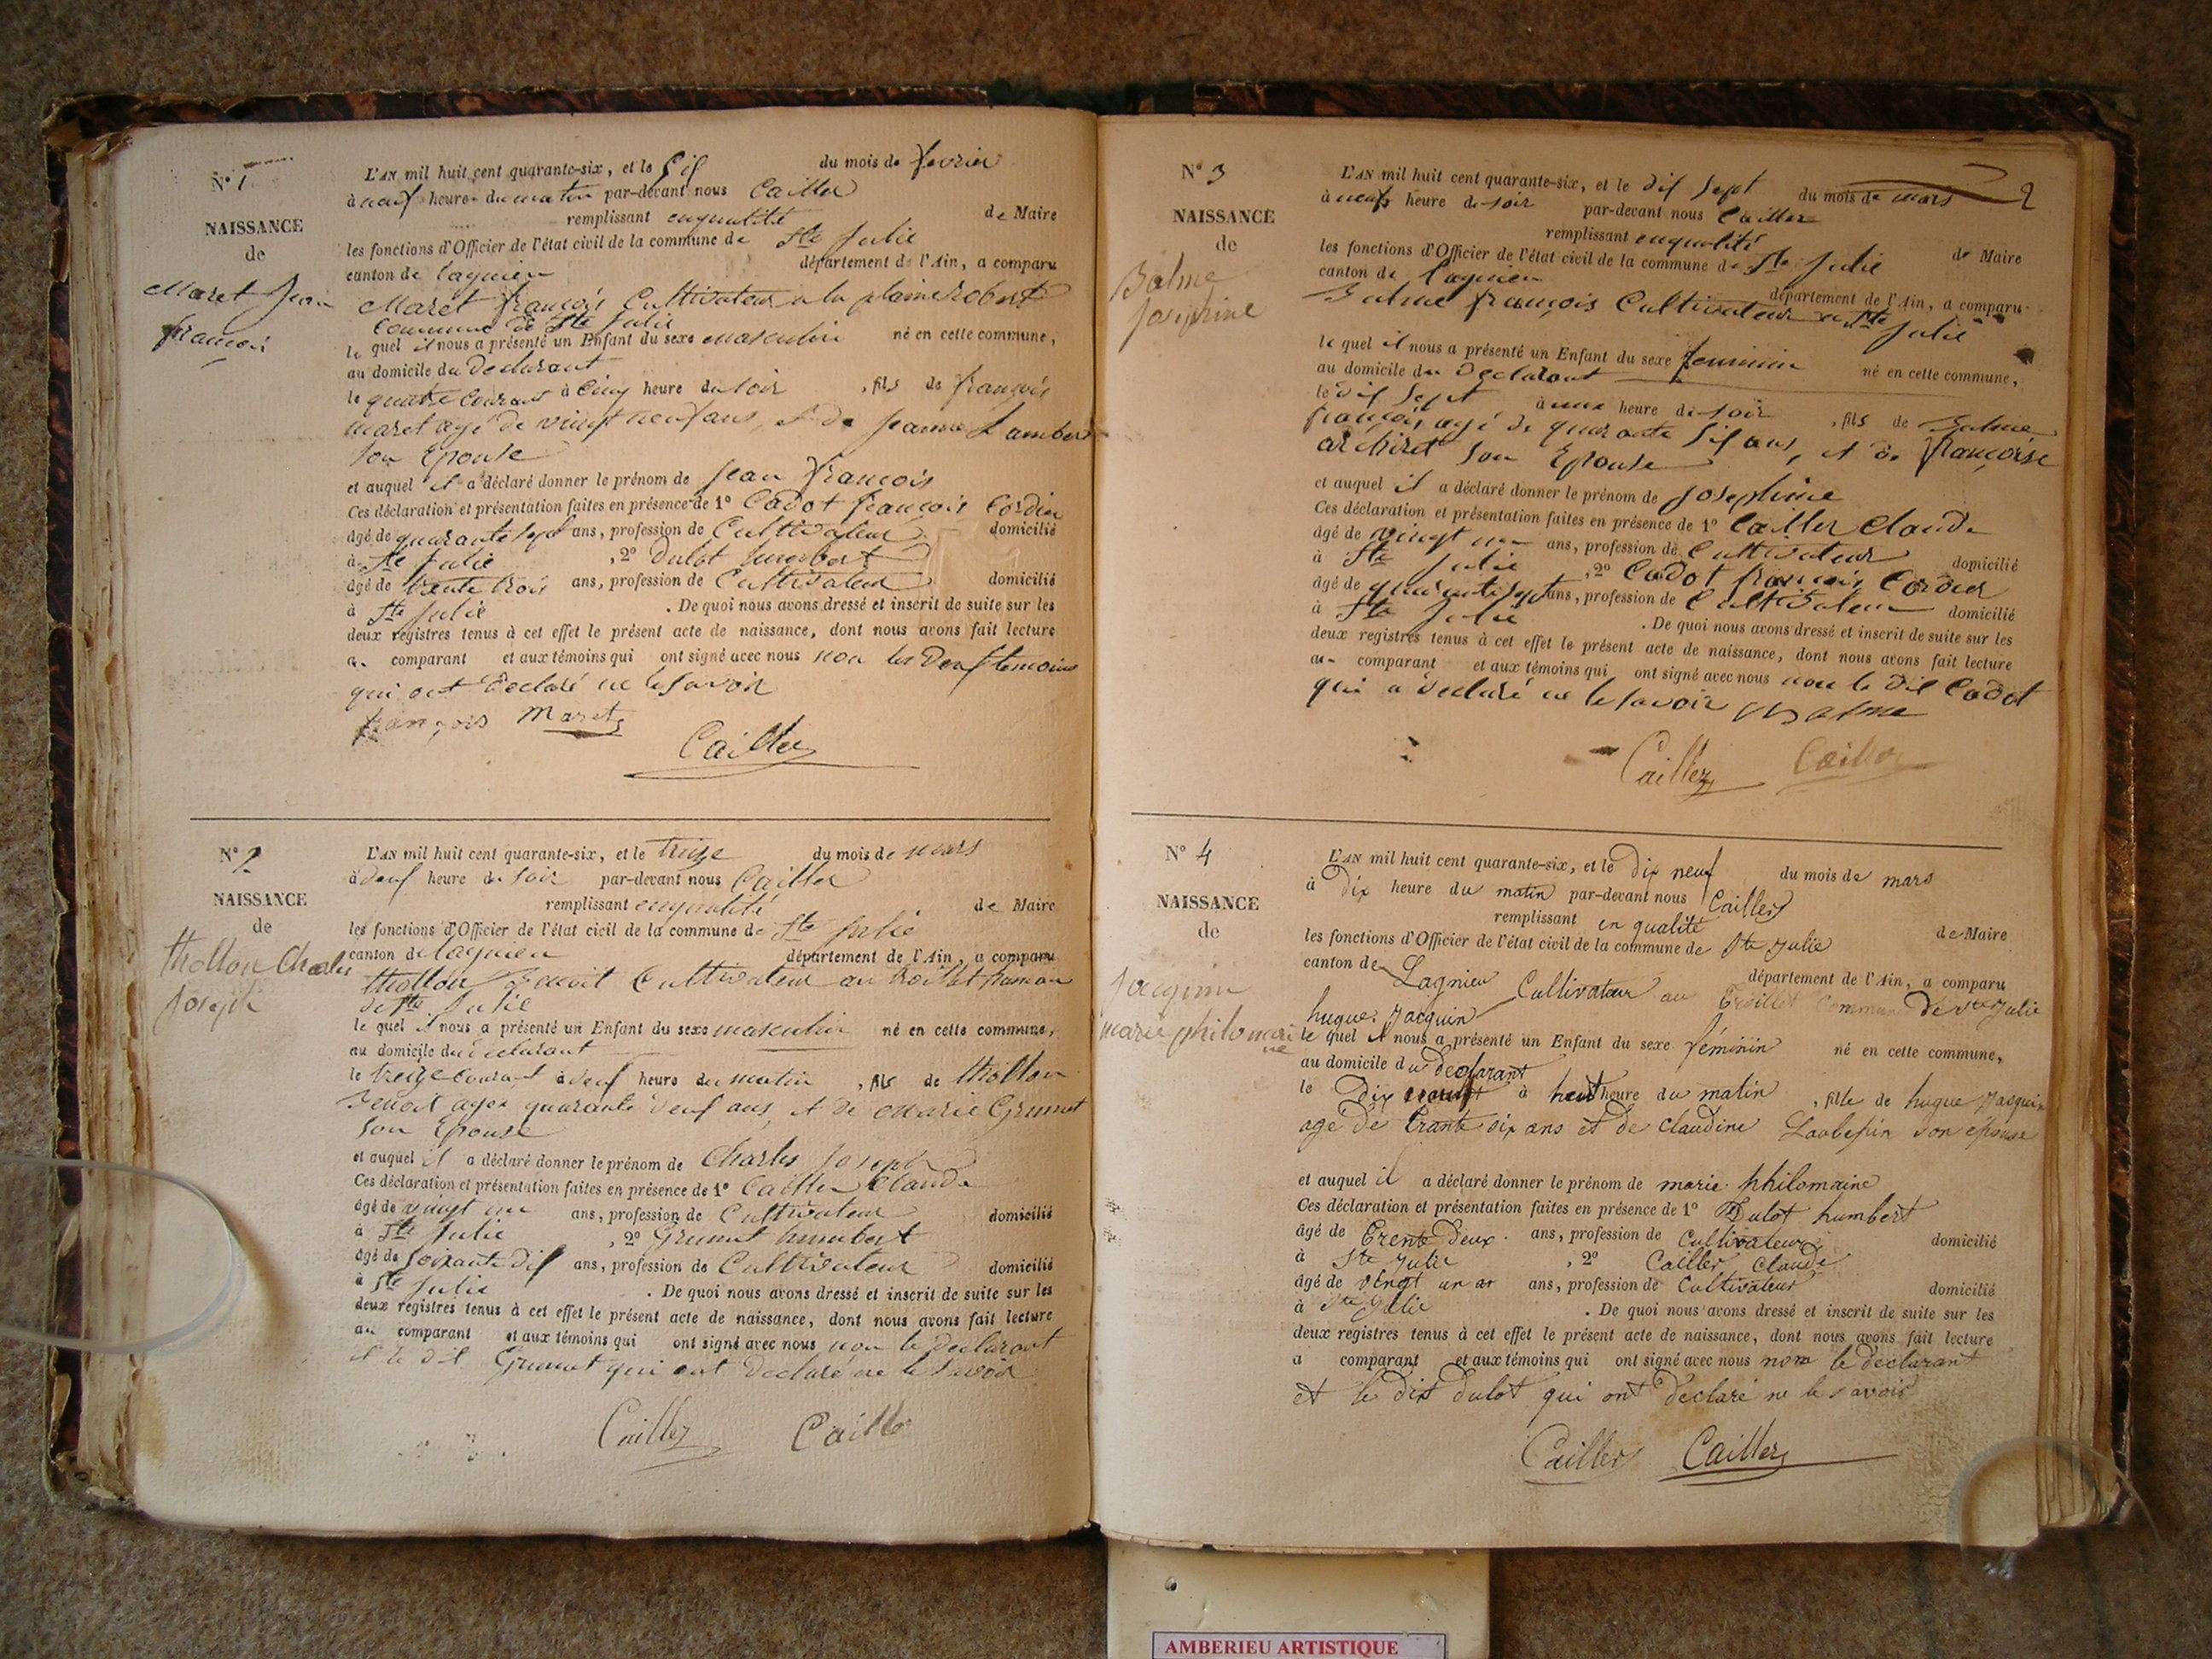 N° 1
NAISSANCE
de
Maret Jean
françois
L'AN mil huit cent quarante-six, et le Six du mois de fevrier
à neuf heure du matin par-devant nous Cailler
remplissant enqualité de Maire
les fonctions d'Officier de l'état civil de la commune de Ste Julie
canton de Lagnieu département de l'Ain, a comparu
Maret françois Cultivateur a la plaine robert
Commune de Ste Julie
le quel il nous a présenté un Enfant du sexe masculin né en cette commune,
au domicile du Declarant
le quatre Courant à Cinq heure du soir , fils de françois
maret agé de vingt neuf ans, et de Jeanne Lambert
son Epouse
et auquel il a déclaré donner le prénom de Jean françois
Ces déclaration et présentation faites en présence de 1° Cadot françois Cordier
âgé de quarante sept ans, profession de Cultivateur domicilié
à Ste Julie , 2° Dulot humbert
âgé de trente trois ans, profession de Cultivateur domicilié
à Ste Julie . De quoi nous avons dressé et inscrit de suite sur les
deux registres tenus à cet effet le présent acte de naissance, dont nous avons fait lecture
au comparant et aux témoins qui ont signé avec nous non les Deux temoins
qui ont Declaré ne le savoir
françois Maret
Cailler
N° 2
NAISSANCE
de
thollon Charles
Joseph
L'AN mil huit cent quarante-six, et le treize du mois de mars
à deux heure du soir par-devant nous Cailler
remplissant enqualité de Maire
les fonctions d'Officier de l'état civil de la commune de Ste Julie
canton de Lagnieu département de l'Ain, a comparu
thollon Benoit Cultivateur au troillet
de Ste Julie
le quel il nous a présenté un Enfant du sexe masculin né en cette commune,
au domicile du declarant
le treize courant à deux heure du matin , fils de thollon
Benoit agé quarante deux ans, et de Marie Grumut
son Epouse
et auquel il a déclaré donner le prénom de Charles Joseph
Ces déclaration et présentation faites en présence de 1° Cailler Claude
âgé de vingt un ans, profession de Cultivateur domicilié
à Ste Julie , 2° Grumut humbert
âgé de soixante dix ans, profession de Cultivateur domicilié
à Ste Julie . De quoi nous avons dressé et inscrit de suite sur les
deux registres tenus à cet effet le présent acte de naissance, dont nous avons fait lecture
au comparant et aux témoins qui ont signé avec nous non le declarant
et le dit Grumut qui ont Declaré ne le savoir
Cailler Cailler
2
N° 3
NAISSANCE
de
Balme
Josephine
L'AN mil huit cent quarante-six, et le dix sept du mois de mars
à neufs heure de soir par-devant nous Cailler
remplissant enqualité de Maire
les fonctions d'Officier de l'état civil de la commune de Ste Julie
canton de Lagnieu département de l'Ain, a comparu
Balme françois Cultivateur a Ste Julie
le quel il nous a présenté un Enfant du sexe feminin né en cette commune,
au domicile du Declarant
le dix sept à une heure de soir , fils de Balme
françois, agé de quarante six ans, et de françoise
archiret son Epouse
et auquel il a déclaré donner le prénom de Josephine
Ces déclaration et présentation faites en présence de 1° Cailler Claude
âgé de vingt un ans, profession de Cultivateur domicilié
à Ste Julie , 2° Cadot françois Cordier
âgé de quarante sept ans, profession de Cultivateur domicilié
à Ste Julie . De quoi nous avons dressé et inscrit de suite sur les
deux registres tenus à cet effet le présent acte de naissance, dont nous avons fait lecture
au comparant et aux témoins qui ont signé avec nous non le dit Cadot
qui a declaré ne le savoir Balme
Cailler Cailler
N° 4
NAISSANCE
de
Jacquin
marie philomaine
L'AN mil huit cent quarante-six, et le dix neuf du mois de mars
à Dix heure du matin par-devant nous Cailler
remplissant en qualité de Maire
les fonctions d'Officier de l'état civil de la commune de Ste Julie
canton de Lagnieu département de l'Ain, a comparu
hugue Jacquin Cultivateur au Troillet Commune De Ste Julie
le quel il nous a présenté un Enfant du sexe féminin né en cette commune,
au domicile du declarant
le Dix neuf à huit heure du matin , fille de hugue Jacquin
agé De trante six ans et de claudine Laubepin son epouse
et auquel il a déclaré donner le prénom de marie philomaine
Ces déclaration et présentation faites en présence de 1° Dulot humbert
âgé de trente Deux ans, profession de Cultivateur domicilié
à Ste Julie , 2° Cailler Claude
âgé de vingt un ans, profession de Cultivateur domicilié
à Ste Julie . De quoi nous avons dressé et inscrit de suite sur les
deux registres tenus à cet effet le présent acte de naissance, dont nous avons fait lecture
a comparant et aux témoins qui ont signé avec nous non le declarant
et le dit dulot qui ont declaré ne le savoir
Cailler Cailler
AMBERIEU ARTISTIQUE